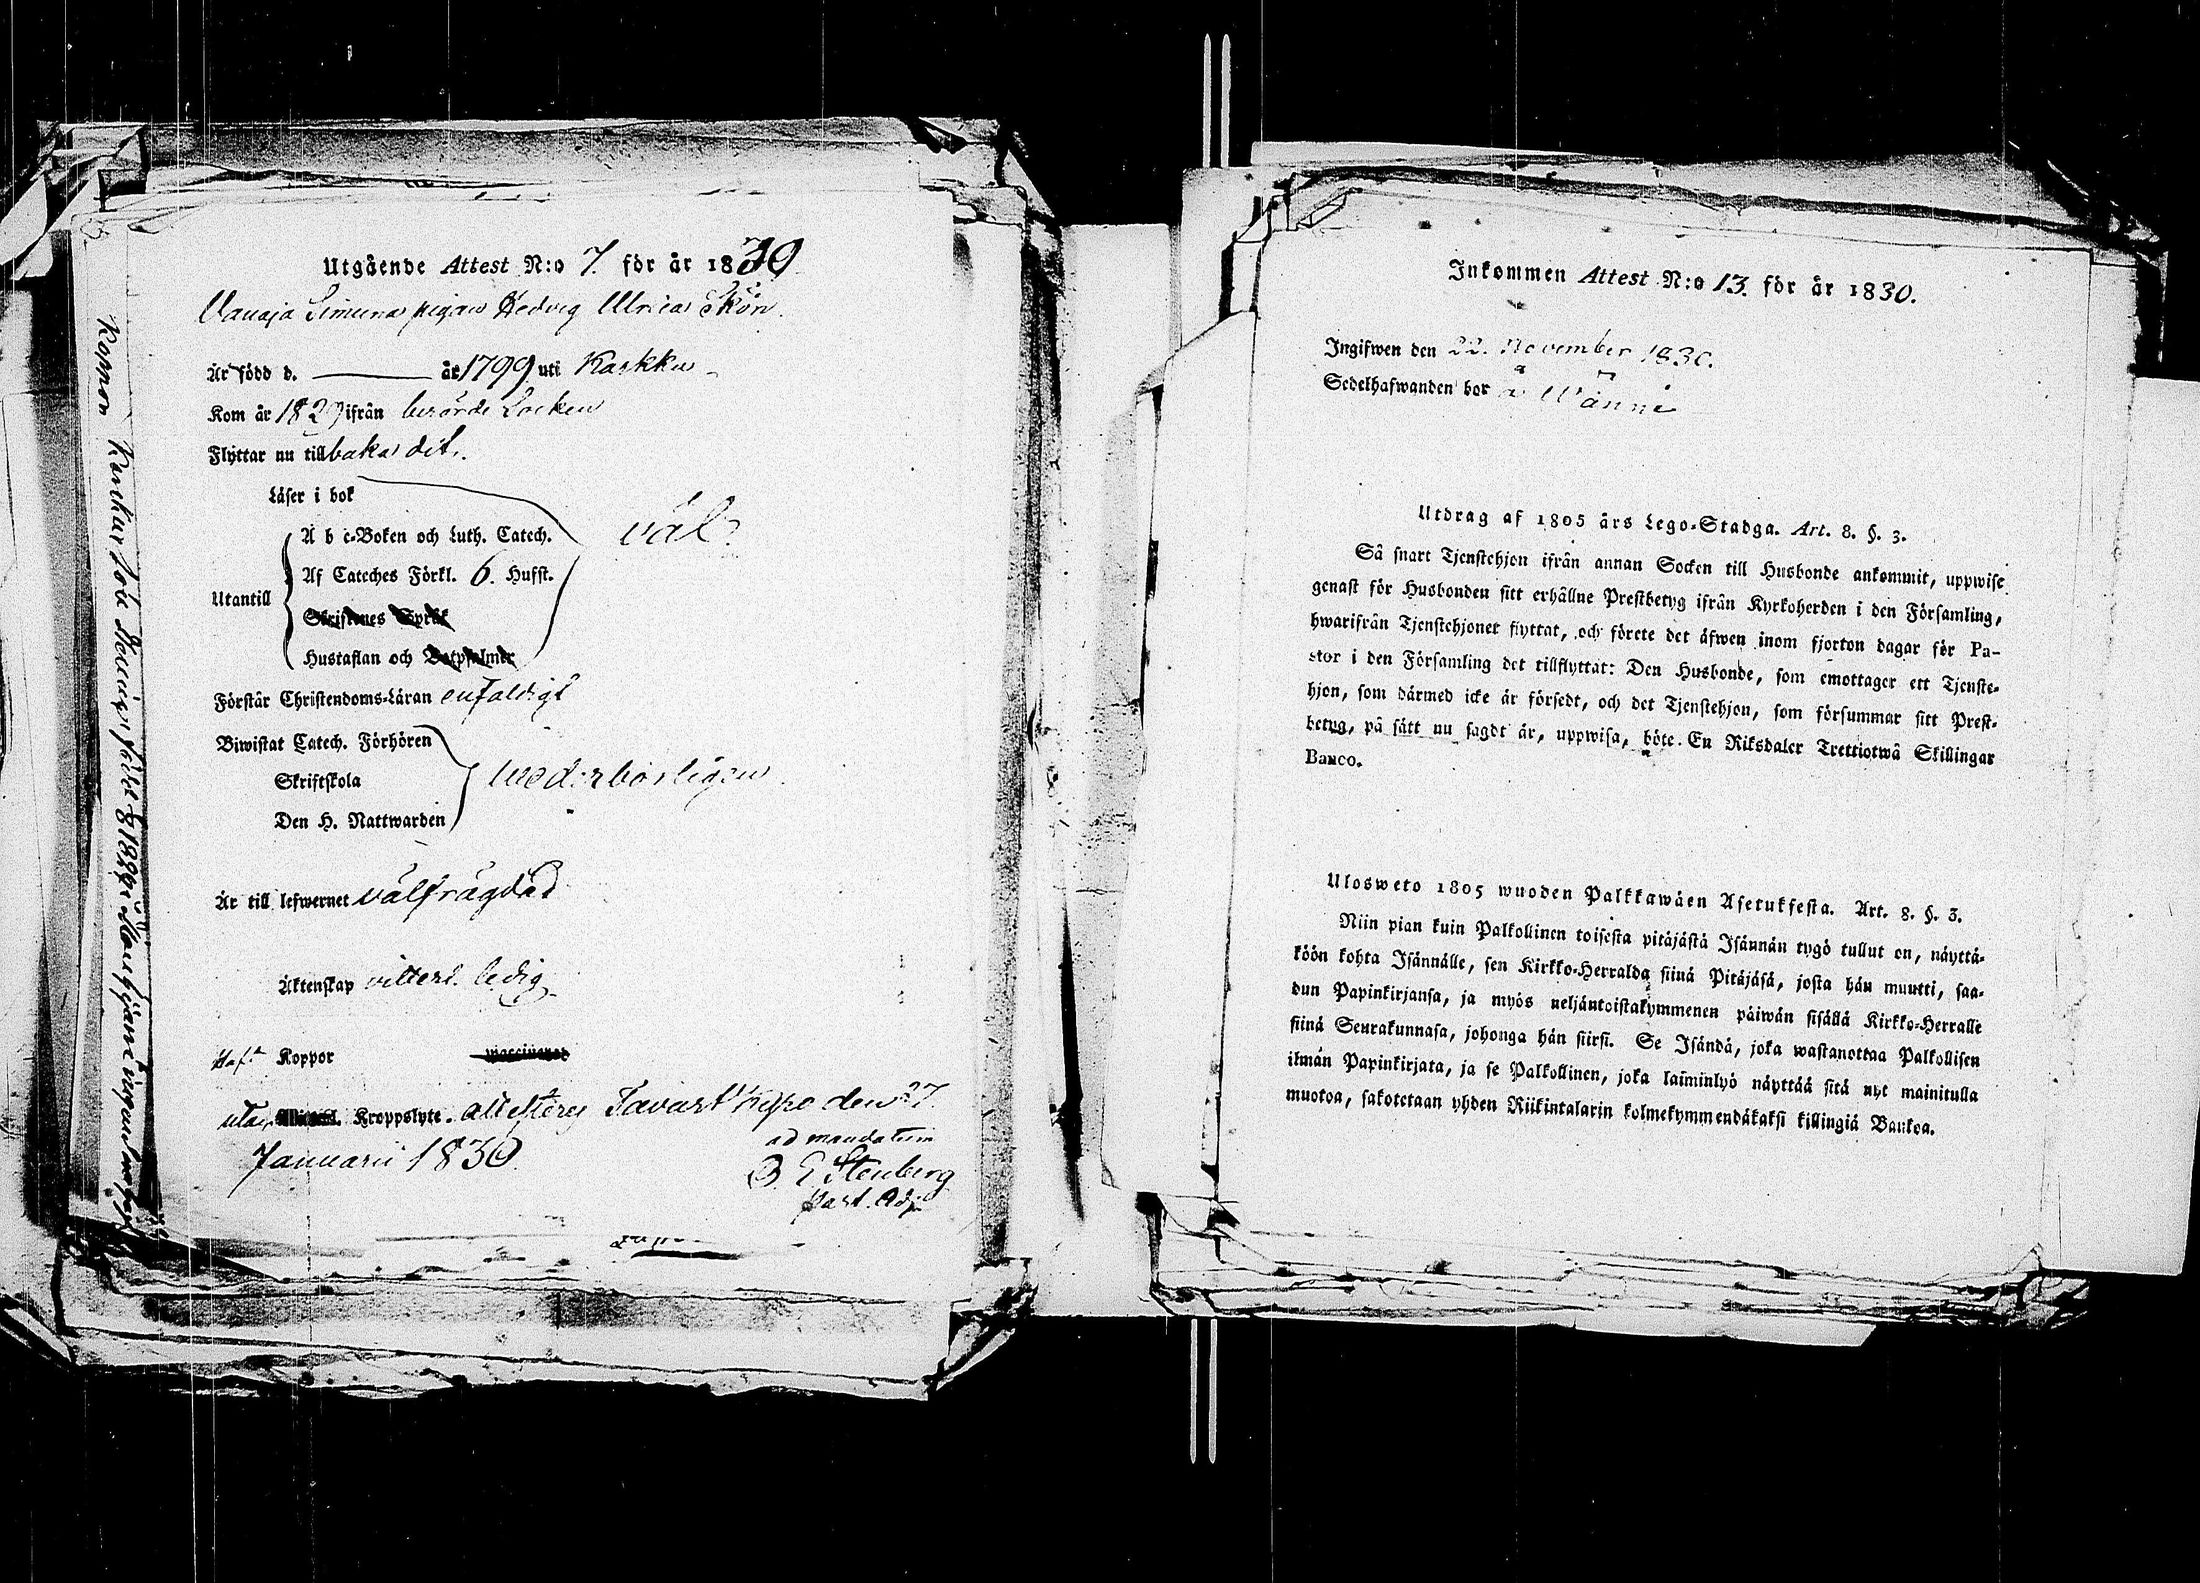 Utgående Attest N:o 7. för år 1830
Vanaja Simuna pigan Hedvig Ulrica Skön.
Är född d. ——— år 1799 uti Karkku
Kom år 1829 ifrån berörde Socken
Flyttar nu tillbaka dit.
Läser i bok
väl.
A b c-Boken och Luth. Catech.
Af Cateches Förkl. 6. Hufst.
Utantill
Skriftenes Språk
Hustaflan och Botpsalmer
Förstår Christendoms-Läran enfaldigt
Biwistat Catech. Förhören
Skriftskola
wederbörligen
Den H. Nattwarden
Är till lefwernet välfrägdad
Äktenskap vitterl. ledig
Haft Koppor vaccinerad
utan Kroppslyte. attesterer Tavastkyro den 27
Januarii 1830.
ad mandatum
E Stenberg
Past. Adj.
Koppor
Inkommen Attest N:o 13. för år 1830.
Ingifwen den 22. November 1830.
Sedelhafwanden bor å Wänni
Utdrag af 1805 års Lego-Stadga. Art. 8. §. 3.
Så snart Tjenstehjon ifrån annan Socken till Husbonde ankommit, uppwise
genast för Husbonden sitt erhållne Prestbetyg ifrån Kyrkoherden i den Församling,
hwarifrån Tjenstehjonet flyttat, och förete det äfwen inom fjorton dagar för Pa-
stor i den Församling det tillflyttat: Den Husbonde, som emottager ett Tjenste-
hjon, som därmed icke är försedt, och det Tjenstehjon, som försummar sitt Prest-
betyg, på sätt nu sagdt är, uppwisa, böte En Riksdaler Trettiotwå Skillingar
Banco.
Ulosweto 1805 wuoden Palkkawäen Asetuksesta. Art. 8. §. 3.
Niin pian kuin Palkollinen toisesta pitäjästä Isännän tygö tullut on, näyttä-
köön kohta Isännälle, sen Kirkko-Herralda siinä Pitäjäsä, josta hän muutti, saa-
dun Papinkirjansa, ja myös neljäntoistakymmenen päiwän sisällä Kirkko-Herralle
siinä Seurakunnasa, johonga hän siirsi. Se Isändä, joka wastanottaa Palkollisen
ilman Papinkirjata, ja se Palkollinen, joka laiminlyö näyttää sitä nyt mainitulla
muotoa, sakotetaan yhden Riikintalarin kolmekymmendäkaksi killingiä Bankoa.